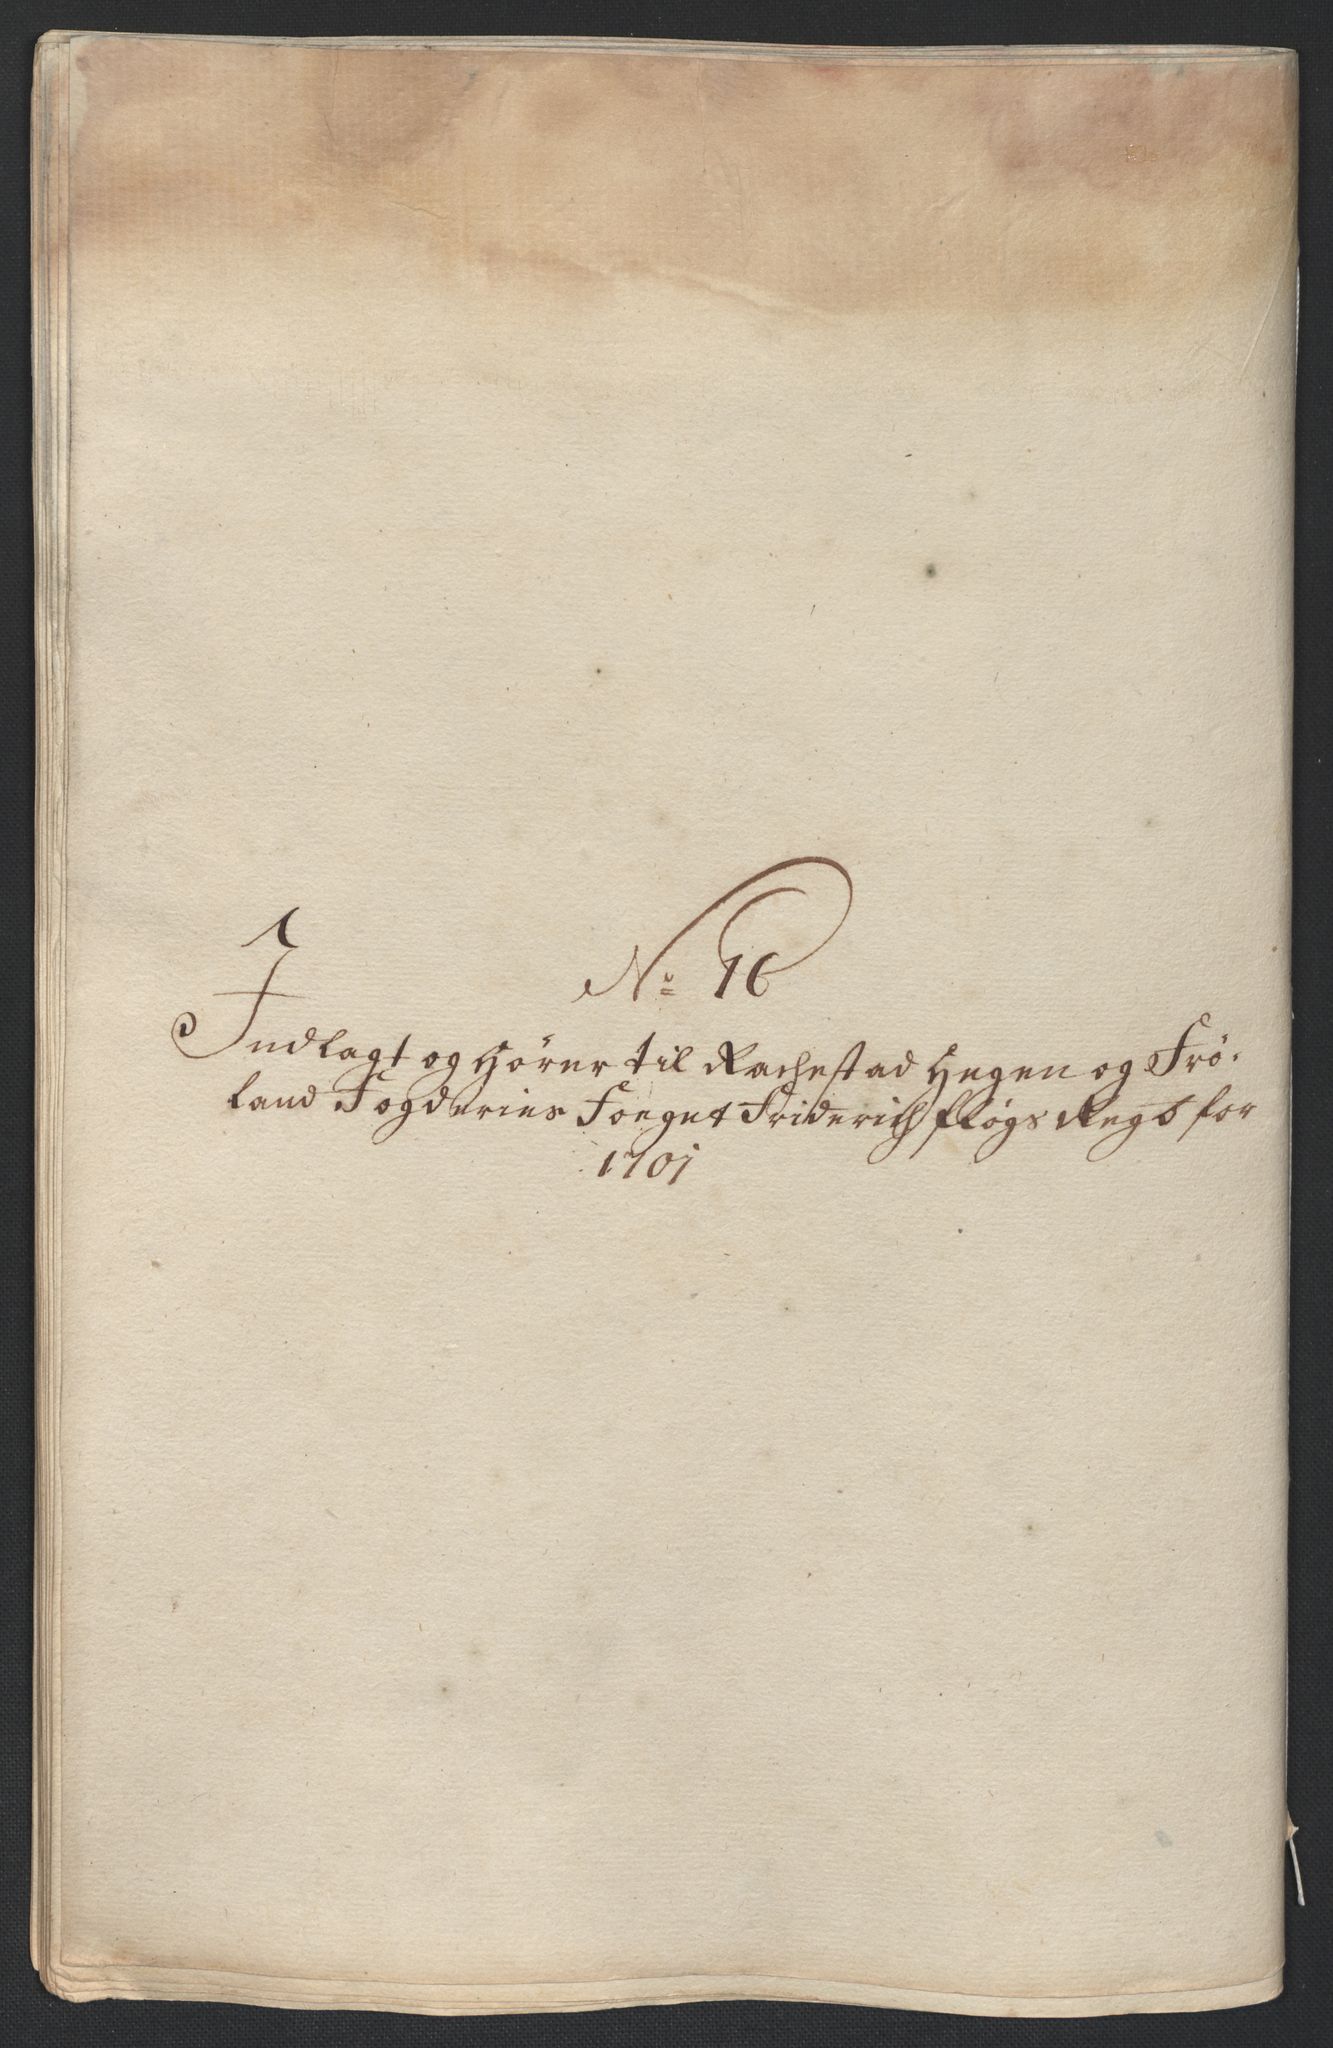 No 16
Indlagt og Hörer til Rachestad Heggen og Frö-
land Fogderies Foeget Friderich Røgs Regs for
1701